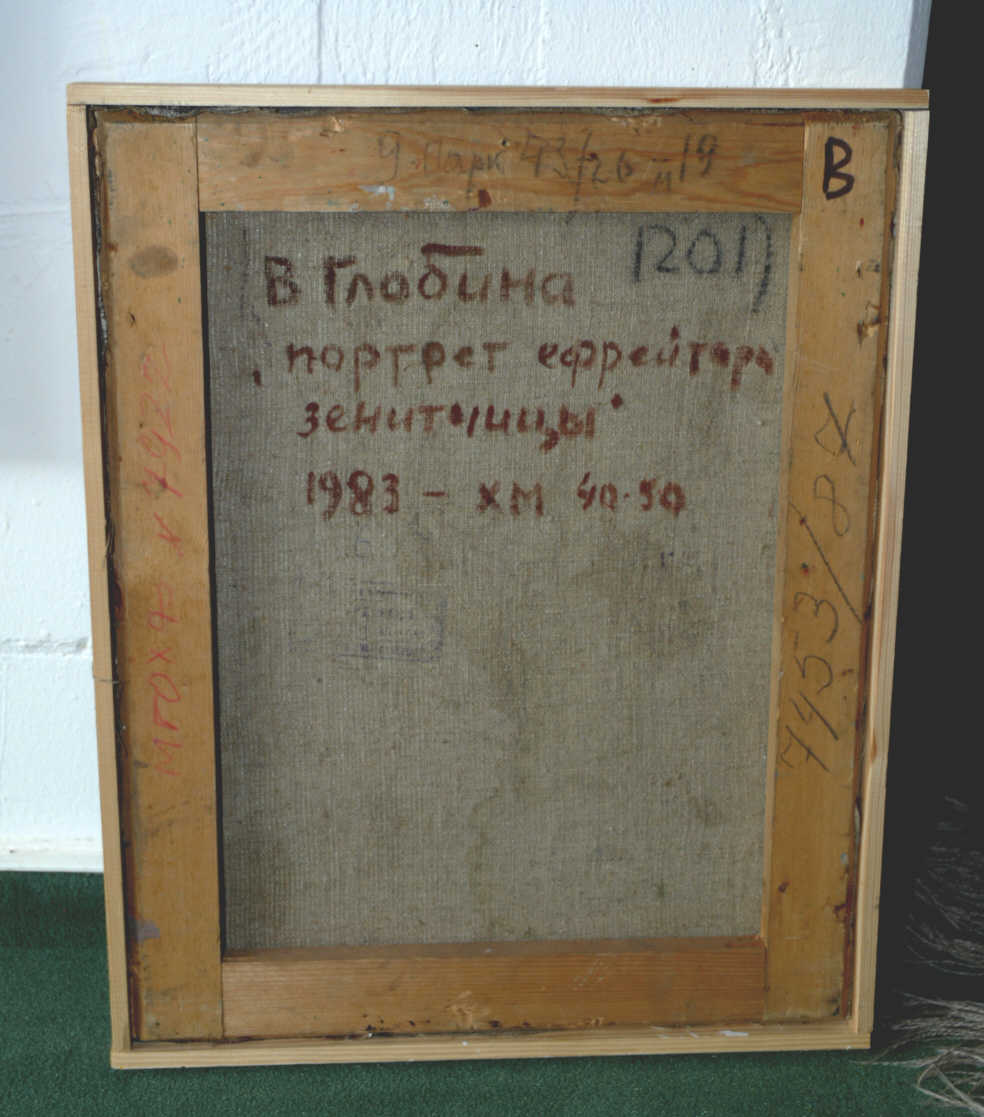 9 Парк 43/26 м 19
В
(201)
В Глобина
"портрет ефрейтора
зенитчицы"
1983 - хм 40·50
7453/87